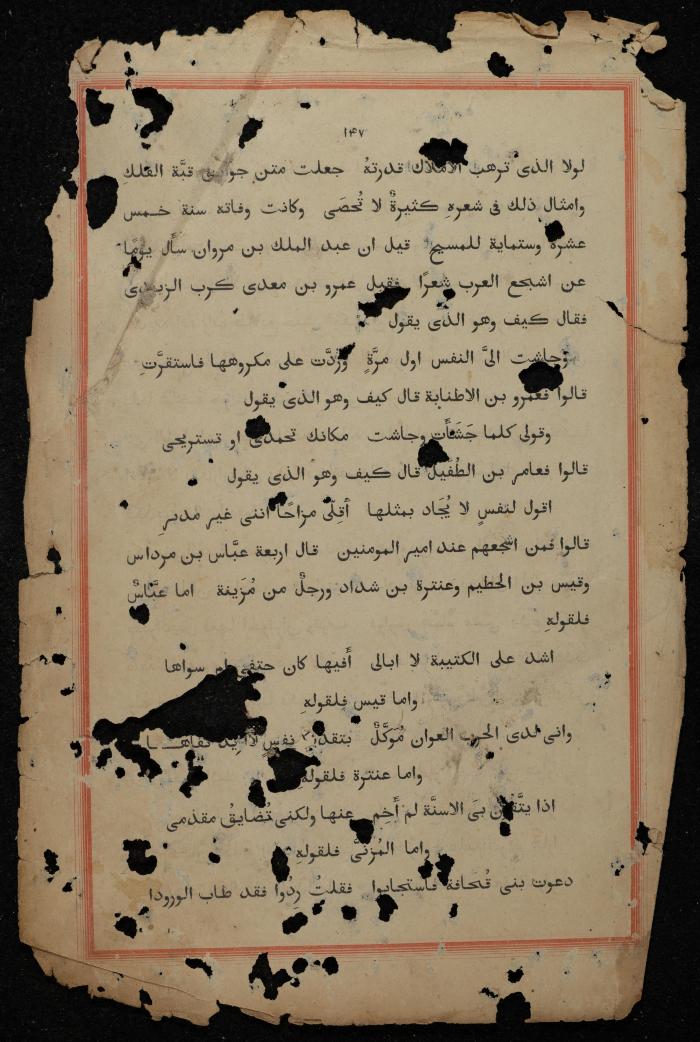 ١٤٧
لولا الذى ترهب الاملاك قدرتهُ جعلت متن قبَّة الفلكِ
وامثال ذلك فى شعرهِ كثيرةٌ لا تُحصَى وكانت وفاته سنة خـمس
عشرة وستماية للمسيح قيل ان عبد الملك بن مروان سأَل يومًا
عن اشجع العرب شعرًا فقيل عمرو بن معدى كرب الزبيدى
فقال كيف وهو الذى يقول
وجاشت الىَّ النفس اول مرَّةٍ ورُدَّت على مكروهها فاستقرَّتِ
قالوا فعمرو بن الاطنابة قال كيف وهو الذى يقول
وقولى كلما جَشَأَت وجاشت مكانك تحمدى او تستريحى
قالوا فعامر بن الطُفَيل قال كيف وهو الذى يقول
اقول لنفسٍ لا يُجَاد بمثلها أَقِلّى مزاحًا اننى غير مدبرِ
قالوا فمن اشجعهم عند امير المومنين قال اربعة عبَّاس بن مرداس
وقيس بن الخطيم وعنترة بن شداد ورجلٌ من مُزَينة اما عبَّاسٌ
فلقولهِ
اشد على الكتيبة لا ابالى أَفيها كان حتفى ام سواها
واما قيس فلقولهِ
وانى لدى الحرب العوان مُوَكَّلٌ بتقديم نفسٍ
واما عنترة فلقولهِ
اذا يتَّقون بىَ الاسنَّة لم أَخِم عنها ولكنى تُضايقُ مقدمى
واما المُزَنىُّ فلقولهِ
دعوت بنى قُحافة فاستجابوا فقلتُ رِدُوا فقد طاب الورودا